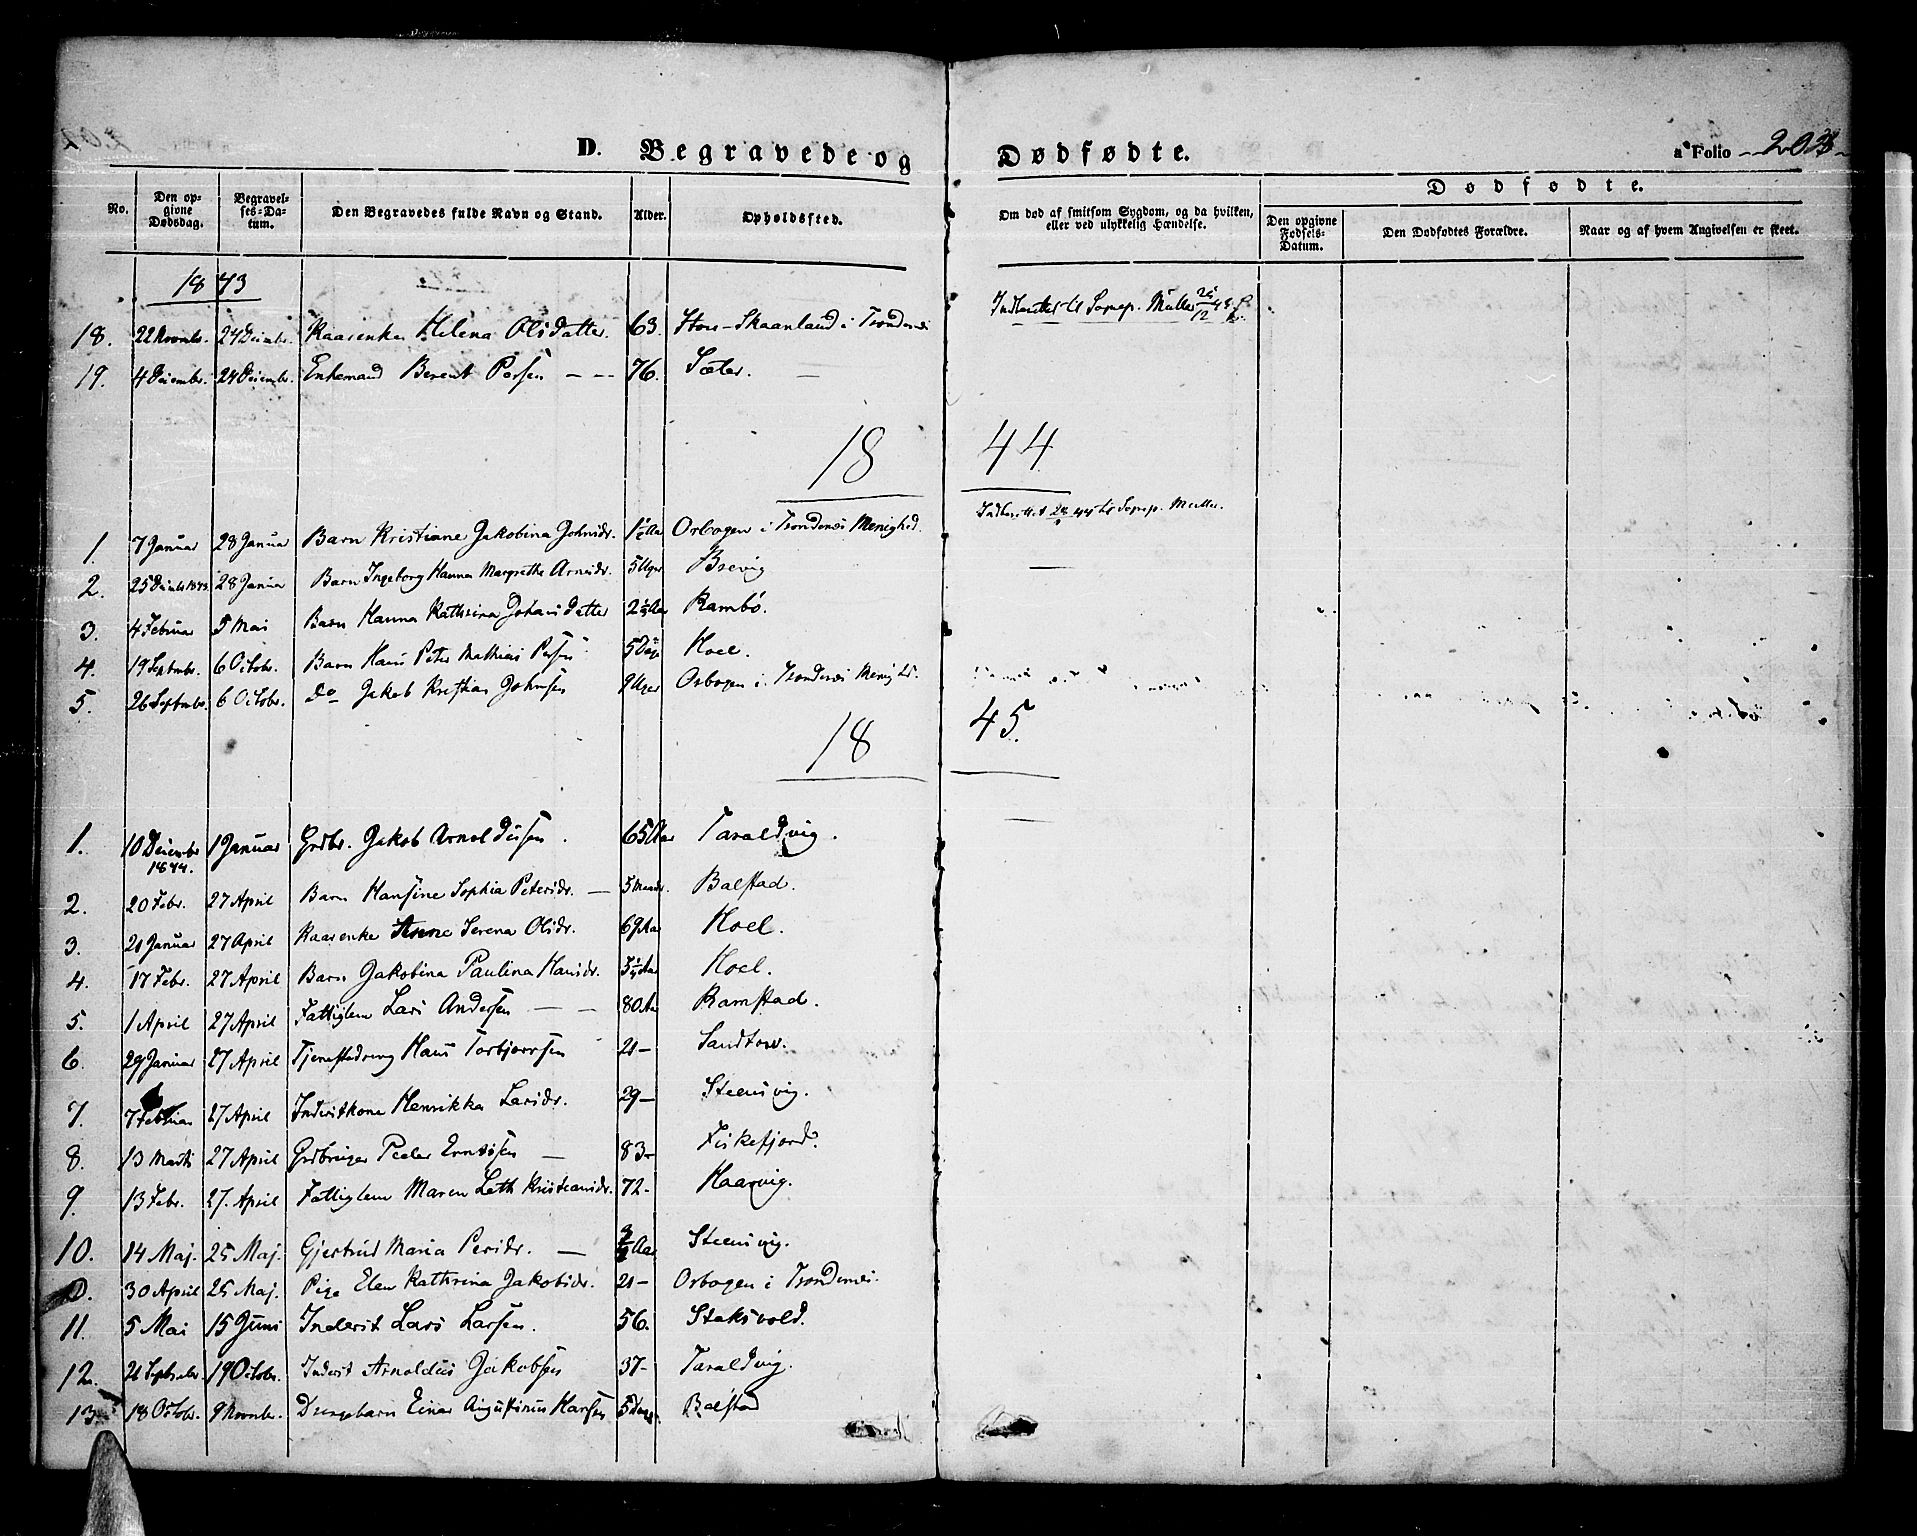 D. Begravede og Dødfødte.
a Folio 203
No.
Den opgivne Dødsdag.
Begravelses-Datum.
Den Begravedes fulde Navn og Stand.
Alder.
Opholdsfted.
Om død af smitsom Sygdom, og da hvilken, eller ved ulykkelig Hændelse.
Dødfødte.
Den opgivne Fødsels-Datum.
Den Dødfødtes Forældre.
Naar og af hvem Angivelsen er skeet.
1843
18. 22 Novmbr. 24 Decmbr. Kaarenke Helena Olsdatter. 63. Stor-Skaanland i Trondenes
19. 4 Decembr. 24 Decembr. Enkemand Berent Persen 76. Sæter.
1844
1. 7 Januar 28 Januar Barn Kristiane Jakobina Johnsdr. Orbogen i Trondenes Menighed.
2. 25 Decmbr 1843. 28 Januar Barn Ingeborg Hanna Margrethe Arnesdr. 5 Uger Brevig
3. 4 Februar 5 Mai Barn Hanna Kathrina Johansdatter Rambø.
4. 19 Septmbr. 6 Octobr. Barn Hans Peter Mathias Persen 5 Dage Hoel.
5. 26 Septmbr. 6 Octobr. Do Jakob Kristian Johnsen 9 Uger Orbogen i Trondenes
1845.
1. 10 Decembr 1844. 1 Januar Grdbr. Jakob Arnoldusen. 65 Aar Taraldvig.
2. 20 Febr. 27 April Barn Hansine Sophia Petersdr. 5 Maandr. Balstad.
3. 21 Januar 27 April Kaarenke Anne Serena Olsdr. 69 Aar Hoel.
4. 17 Febr. 27 April Barn Jakobina Paulina Hansdr. Hoel.
5. 1 April 27 April Fattiglem Lars Andersen 80 Aar Ramstad.
6. 29 Januar 27 April Tjenestedreng Hans Torbjørnsen 21 - Sandtorv.
7. 7 Februar 27 April Inderstkone Henrikka Larsdr. 29 - Steensvig.
8. 13 Marts 27 April Grdbruger Peder Ernstsen 83 - Fiskefjord.
9. 13 Febr. 27. April Fattiglem Maren Leth Kristiansdr. 72 - Haarvig.
10. 14 Maj. 25 Maj. Gjertrud Maria Persdr. 3/4 Aar Steensvig.
D. 30 April 25 Maj. Pige Elen Kathrina Jakobsdr. 21 - Orbogen i Trondenes.
11. 5 Mai 15 Juni Inderst Lars Larsen. 56. Staksvold.
12. 21 Septembr 19 Octobr. Inderst Arnoldus Jakobsen 37 - Taraldvig.
13 18 Octobr. 9 Novmbr. Drengebarn Einar Augustinus Hansen 5 Dage Balstad